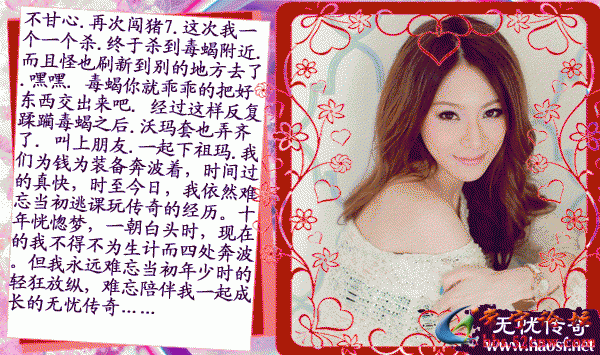 不甘心.再次闯猪7.这次我一
个一个杀.终于杀到毒蝎附近
而且怪也刷新到别的地方去了
.嘿嘿. 毒蝎你就乖乖的把好
东西交出来吧. 经过这样反复
蹂躏毒蝎之后.沃玛套也弄齐
了. 叫上朋友.一起下祖玛.我
们为钱为装备奔波着，时间过
的真快，时至今日，我依然难
忘当初逃课玩传奇的经历。十
年恍惚梦，一朝白头时，现在
的我不得不为生计而四处奔波
。但我永远难忘当初年少时的
轻狂放纵，难忘陪伴我一起成
长的无忧传奇……
无忧传奇
www.haosf.net